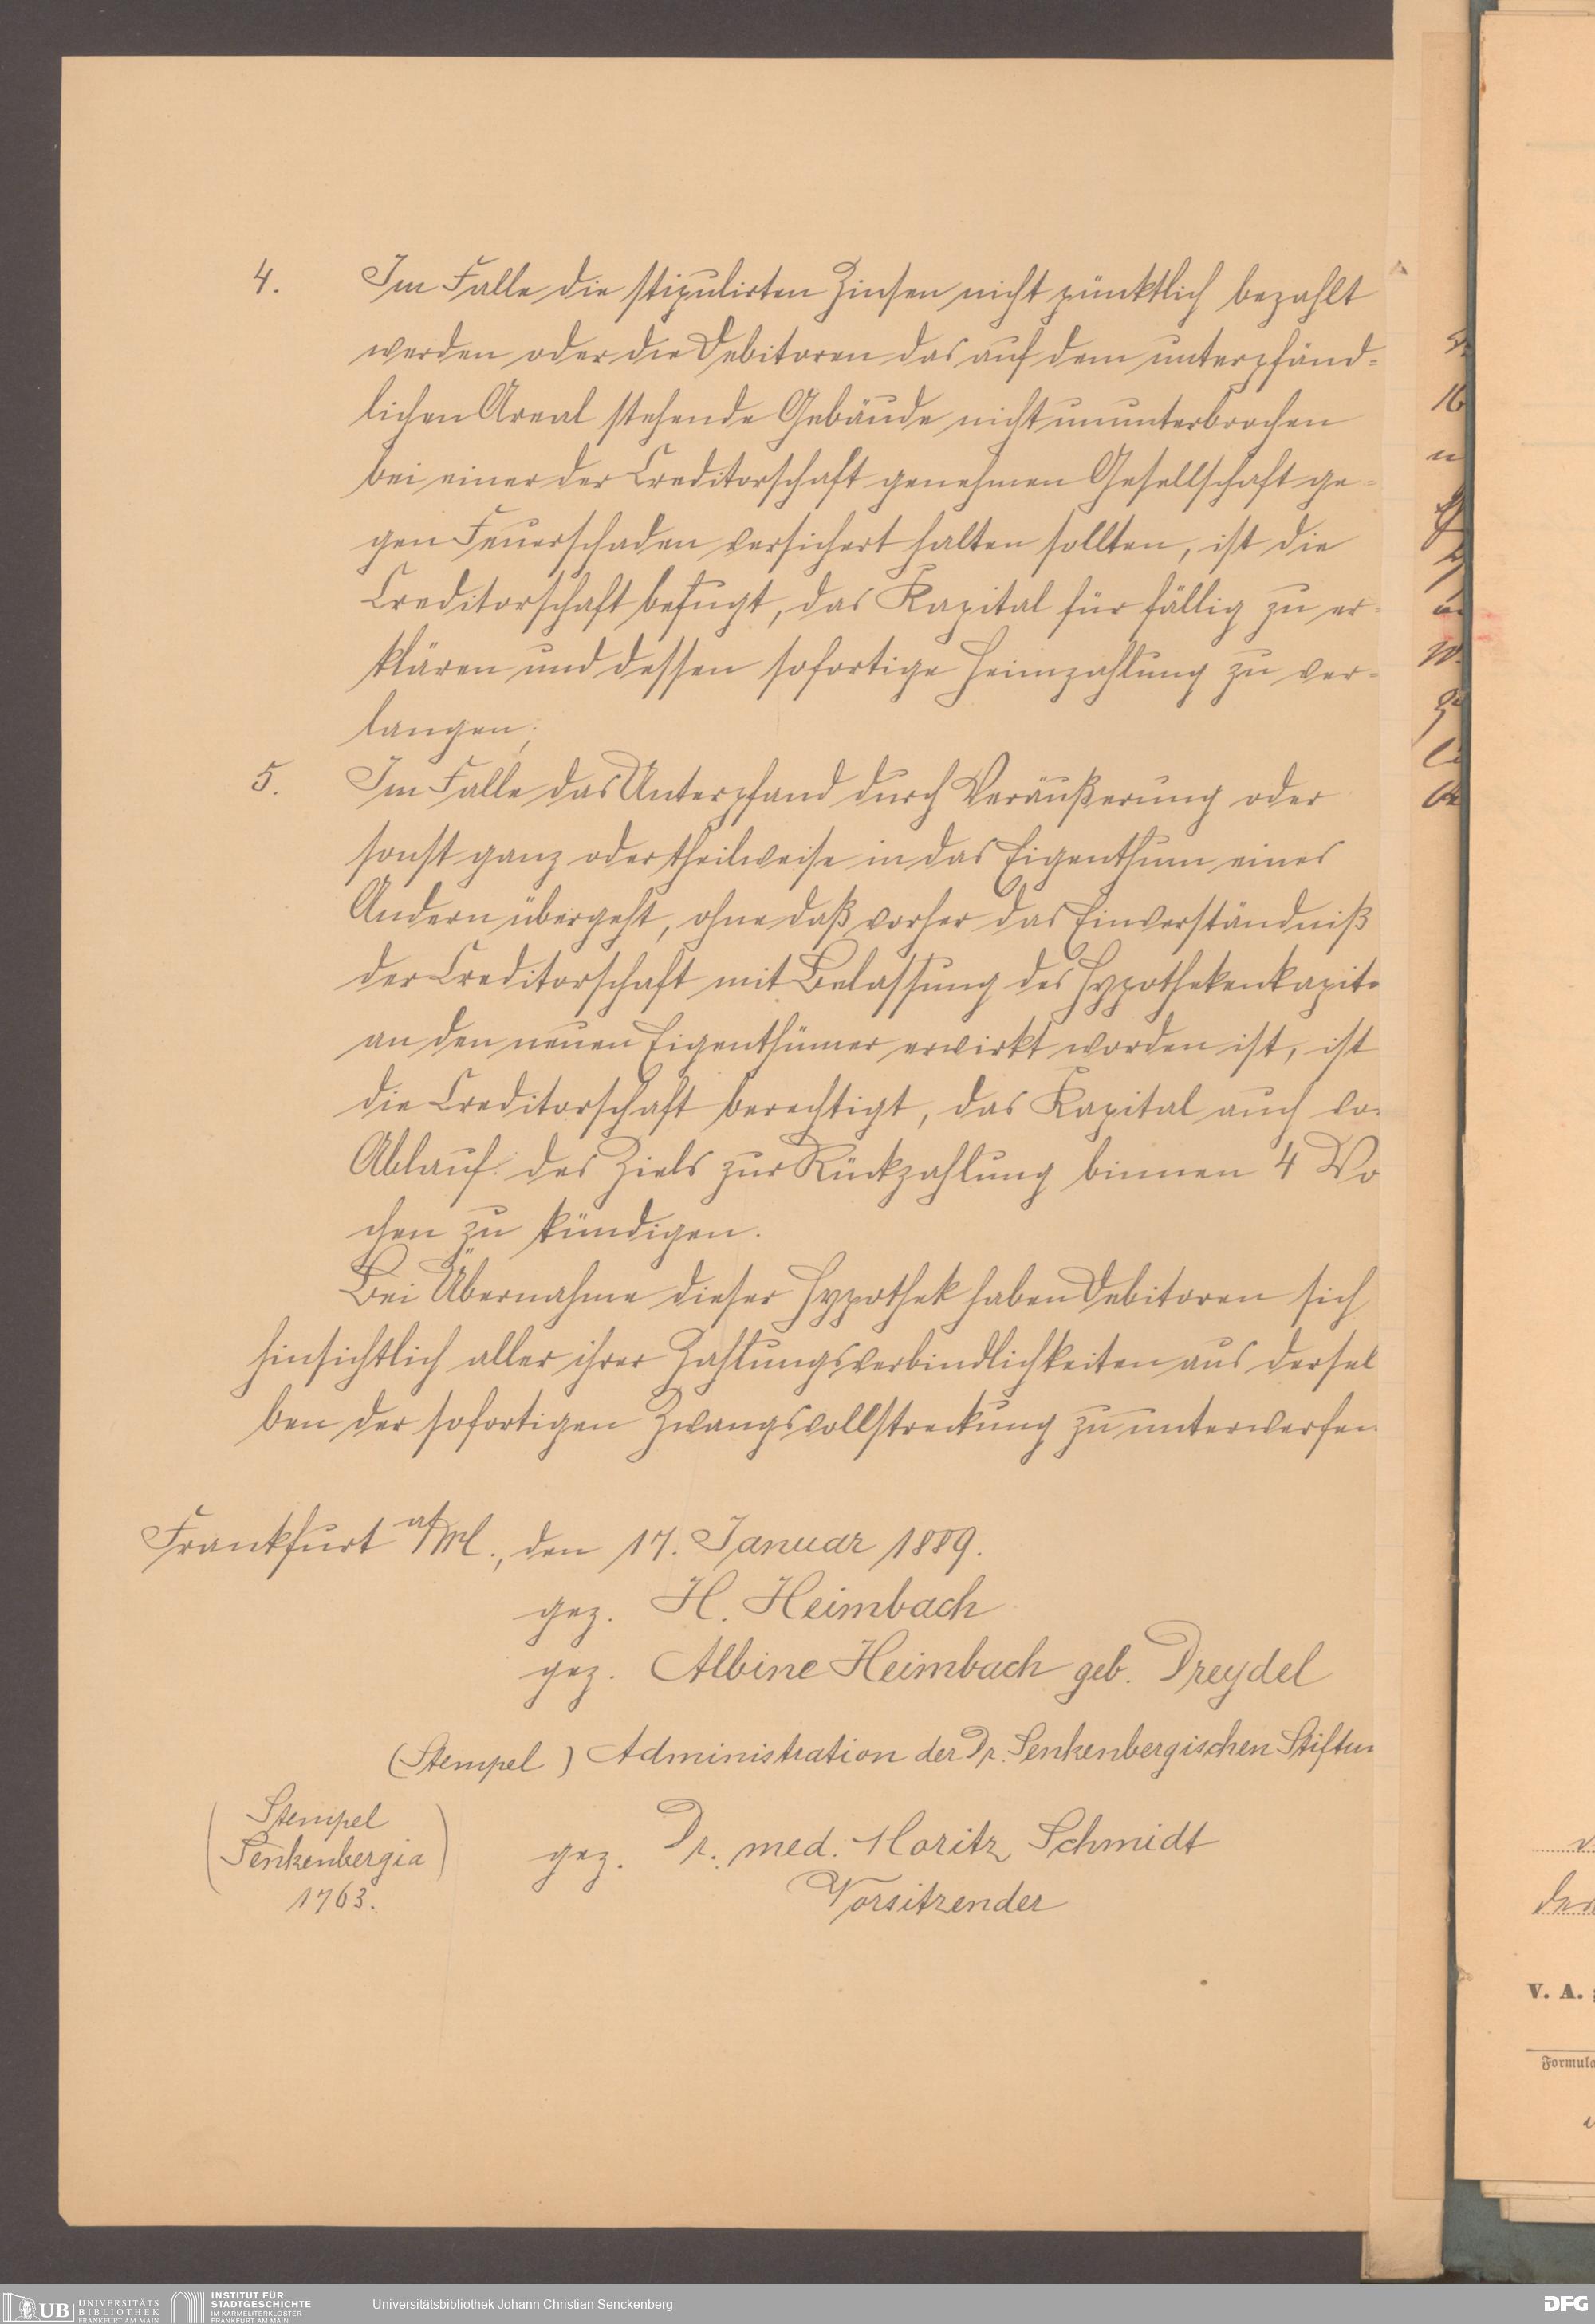 4. Im Falle die stipulirten Zinsen nicht pünktlich bezahlt
werden oder die Debitoren das auf dem unterpfänd-
lichen Areal stehende Gebäude nicht ununterbrochen
bei einer der Creditorschaft genehmen Gesellschaft ge-
gen Feuerschaden versichert halten sollten, ist die
Creditorschaft befugt, das Kapital für fällig zu er-
klären und dessen sofortige Heimzahlung zu ver-
langen;
5. Im Falle das Unterpfand durch Veräußerung oder
sonst ganz oder theilweise in das Eigenthum eines
Andern übergeht, ohne daß vorher das Einverständniß
der Creditorschaft mit Belassung des Hypothekenkapit
an den neuen Eigenthümer erwirkt worden ist, ist
die Creditorschaft berechtigt, das Kapital auch vo
Ablauf des Ziels zur Rückzahlung binnen 4 Wo
chen zu kündigen.
Bei Übernahme dieser Hypothek haben Debitoren sich
hinsichtlich aller ihrer Zahlungsverbindlichkeiten aus dersel
ben der sofortigen Zwangsvollstreckung zu unterwerfen.
Frankfurt a/M., den 17. Januar 1889.
gez. H. Heimbach
gez. Albine Heimbach geb. Dreydel
(Stempel) Administration der Dr. Senkenbergischen Stiftun
(Stempel
Senkenbergia)
1763.
gez. Dr. med. Moritz Schmidt
Vorsitzender
16
V. A.
Formula
UB UNIVERSITÄTS
BIBLIOTHEK
FRANKFURT AM MAIN
INSTITUT FÜR
STADTGESCHICHTE
IM KARMELITERKLOSTER
FRANKFURT AM MAIN
Universitätsbibliothek Johann Christian Senckenberg
DFG